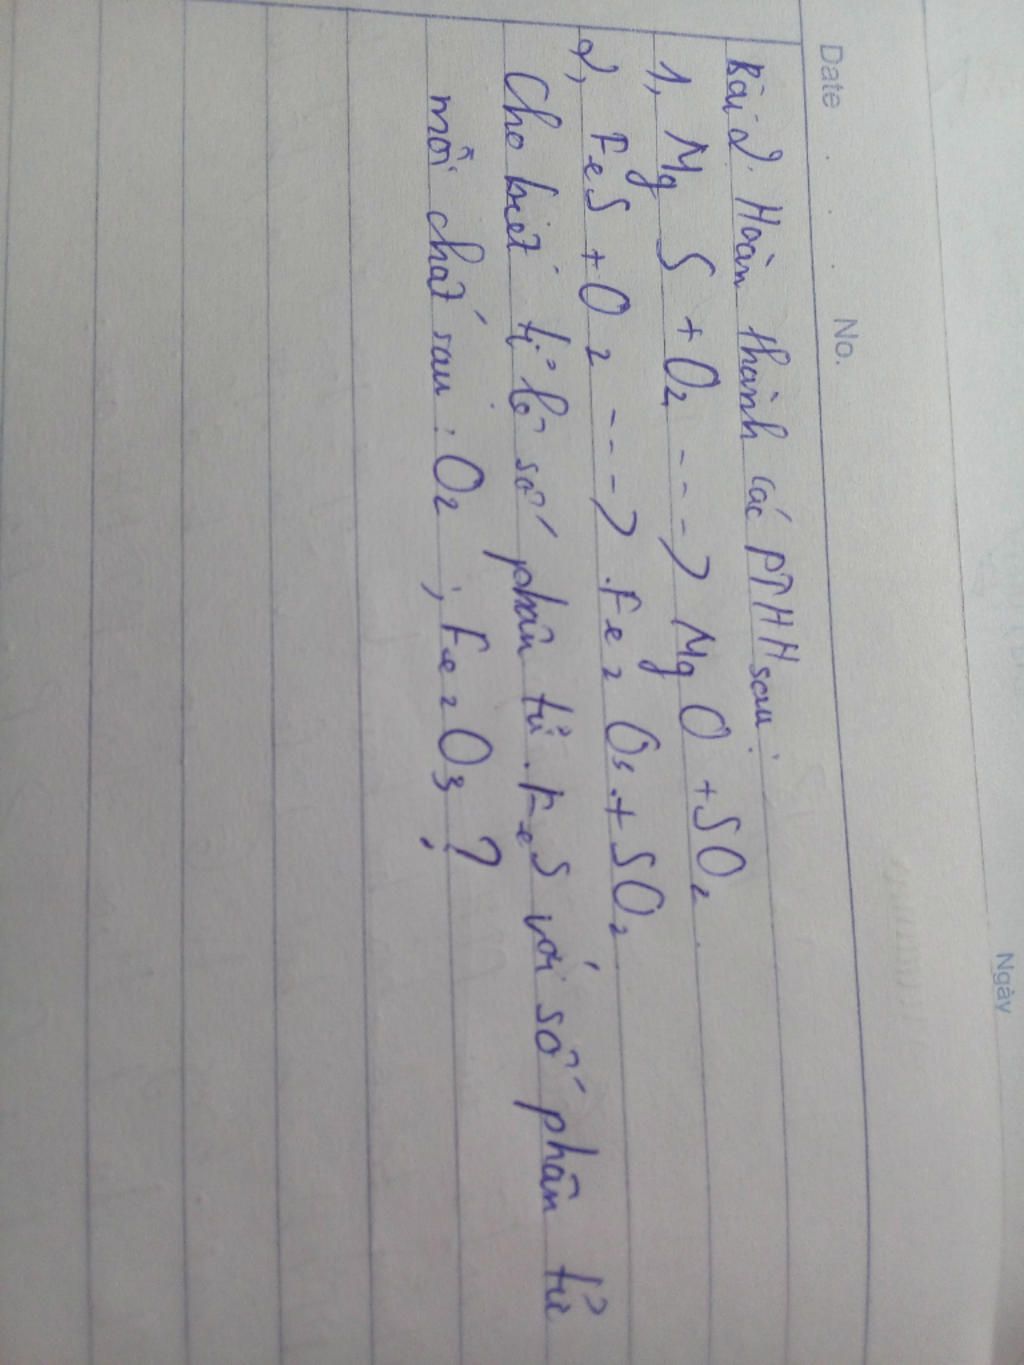 Ngày
Date No.
Bài 2. Hoàn thành các PTHH sau:
1, MgS + O2 ---> MgO + SO2
2, FeS + O2 ---> Fe2O3 + SO2
Cho biết tỉ lệ số phân tử FeS với số phân tử
mỗi chất sau: O2; Fe2O3?